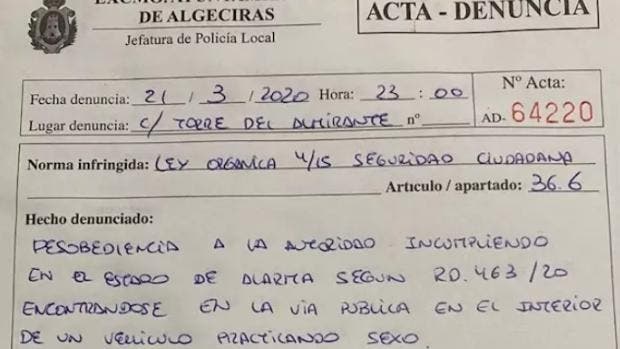 EXCMO. AYUNTAMIENTO
DE ALGECIRAS
Jefatura de Policía Local
ACTA - DENUNCIA
Fecha denuncia: 21 / 3 / 2020 Hora: 23 : 00
Nº Acta:
Lugar denuncia: C/ TORRE DEL ALMIRANTE nº
AD- 64220
Norma infringida: LEY ORGANICA 4/15 SEGURIDAD CIUDADANA
Artículo / apartado: 36.6
Hecho denunciado:
DESOBEDIENCIA A LA AUTORIDAD INCUMPLIENDO
EN EL ESTADO DE ALARMA SEGUN RD. 463/20
ENCONTRANDOSE EN LA VIA PUBLICA EN EL INTERIOR
DE UN VEHICULO PRACTICANDO SEXO.